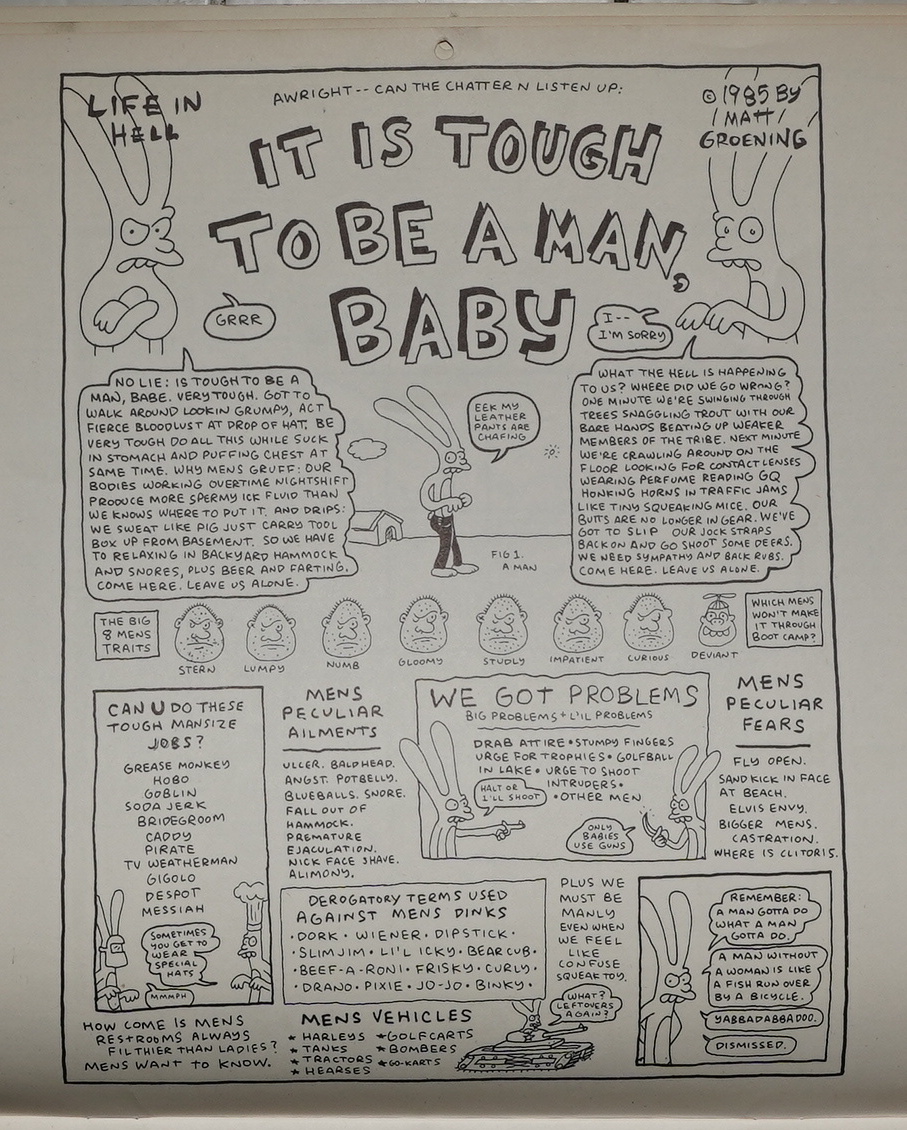 LIFE IN
HELL
AWRIGHT-- CAN THE CHATTER N LISTEN UP:
© 1985 BY
MATT
GROENING
IT IS TOUGH
TO BE A MAN,
BABY
GRRR
I--
I'M SORRY
NO LIE: IS TOUGH TO BE A
MAN, BABE. VERY TOUGH. GOT TO
WALK AROUND LOOKIN GRUMPY, ACT
FIERCE BLOODLUST AT DROP OF HAT, BE
VERY TOUGH DO ALL THIS WHILE SUCK
IN STOMACH AND PUFFING CHEST AT
SAME TIME. WHY MENS GRUFF: OUR
BODIES WORKING OVERTIME NIGHTSHIFT
PRODUCE MORE SPERMY ICK FLUID THAN
WE KNOWS WHERE TO PUT IT. AND DRIPS:
WE SWEAT LIKE PIG JUST CARRY TOOL
BOX UP FROM BASEMENT. SO WE HAVE
TO RELAXING IN BACKYARD HAMMOCK
AND SNORES, PLUS BEER AND FARTING.
COME HERE. LEAVE US ALONE.
EEK MY
LEATHER
PANTS ARE
CHAFING
FIG 1.
A MAN
WHAT THE HELL IS HAPPENING
TO US? WHERE DID WE GO WRONG?
ONE MINUTE WE'RE SWINGING THROUGH
TREES SNAGGLING TROUT WITH OUR
BARE HANDS BEATING UP WEAKER
MEMBERS OF THE TRIBE. NEXT MINUTE
WE'RE CRAWLING AROUND ON THE
FLOOR LOOKING FOR CONTACT LENSES
WEARING PERFUME READING GQ
HONKING HORNS IN TRAFFIC JAMS
LIKE TINY SQUEAKING MICE. OUR
BUTTS ARE NO LONGER IN GEAR. WE'VE
GOT TO SLIP OUR JOCK STRAPS
BACK ON AND GO SHOOT SOME DEERS.
WE NEED SYMPATHY AND BACK RUBS.
COME HERE. LEAVE US ALONE.
THE BIG
8 MENS
TRAITS
STERN
LUMPY
NUMB
GLOOMY
STUDLY
IMPATIENT
CURIOUS
DEVIANT
WHICH MENS
WON'T MAKE
IT THROUGH
BOOT CAMP?
CAN U DO THESE
TOUGH MANSIZE
JOBS?
GREASE MONKEY
HOBO
GOBLIN
SODA JERK
BRIDEGROOM
CADDY
PIRATE
TV WEATHERMAN
GIGOLO
DESPOT
MESSIAH
SOMETIMES
YOU GET TO
WEAR
SPECIAL
HATS
MMMPH
MENS
PECULIAR
AILMENTS
ULCER. BALDHEAD.
ANGST. POTBELLY.
BLUEBALLS. SNORE.
FALL OUT OF
HAMMOCK.
PREMATURE
EJACULATION.
NICK FACE SHAVE.
ALIMONY.
WE GOT PROBLEMS
BIG PROBLEMS + L'IL PROBLEMS
DRAB ATTIRE • STUMPY FINGERS
URGE FOR TROPHIES • GOLFBALL
IN LAKE • URGE TO SHOOT
INTRUDERS •
• OTHER MEN
HALT OR
I'LL SHOOT
ONLY
BABIES
USE GUNS
MENS
PECULIAR
FEARS
FLY OPEN.
SAND KICK IN FACE
AT BEACH.
ELVIS ENVY.
BIGGER MENS.
CASTRATION.
WHERE IS CLITORIS.
DEROGATORY TERMS USED
AGAINST MENS DINKS
• DORK • WIENER • DIPSTICK •
• SLIMJIM • LI'L ICKY • BEAR CUB •
• BEEF-A-RONI • FRISKY • CURLY •
• DRANO • PIXIE • JO-JO • BINKY •
PLUS WE
MUST BE
MANLY
EVEN WHEN
WE FEEL
LIKE
CONFUSE
SQUEAK TOY.
REMEMBER:
A MAN GOTTA DO
WHAT A MAN
GOTTA DO.
A MAN WITHOUT
A WOMAN IS LIKE
A FISH RUN OVER
BY A BICYCLE.
YABBADABBADOO.
DISMISSED.
HOW COME IS MENS
RESTROOMS ALWAYS
FILTHIER THAN LADIES?
MENS WANT TO KNOW.
MENS VEHICLES
* HARLEYS * GOLFCARTS
* TANKS * BOMBERS
* TRACTORS * GO-KARTS
* HEARSES
WHAT?
LEFTOVERS
AGAIN?